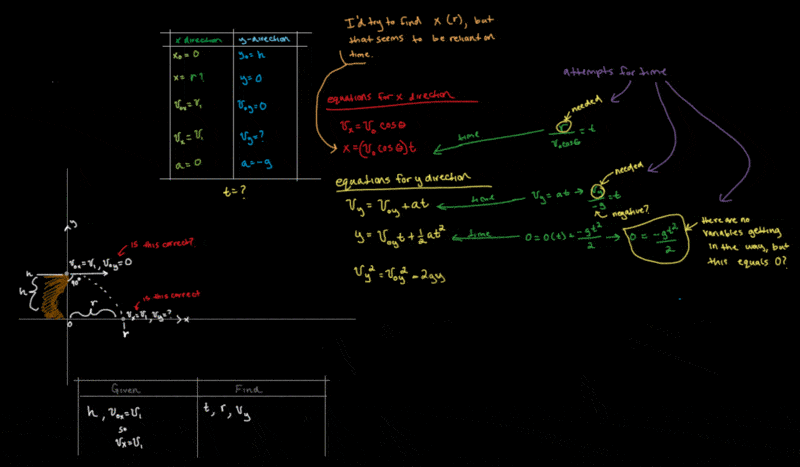 x direction y-direction
x₀ = 0 y₀ = h
x = r? y = 0
v₀ₓ = v₁ v₀y = 0
vₓ = v₁ vy = ?
a = 0 a = -g
t = ?
I'd try to find x (r), but
that seems to be reliant on
time.
equations for x direction
vₓ = v₀ cosθ
x = (v₀ cosθ)t
time
r/(v₀cosθ) = t
needed
attempts for time
equations for y direction
vy = v₀y + at
time
vy = at → vy/-g = t
needed
negative?
y = v₀yt + ½at²
time
0 = 0(t) + -gt²/2 → 0 = -gt²/2
there are no
variables getting
in the way, but
this equals 0?
vy² = v₀y² - 2gy
y
is this correct?
v₀ₓ = v₁, v₀y = 0
h
90°
h
r
is this correct
vₓ = v₁, vy = ?
x
0
r
Given Find
h, v₀ₓ = v₁ t, r, vy
so
vx = v₁